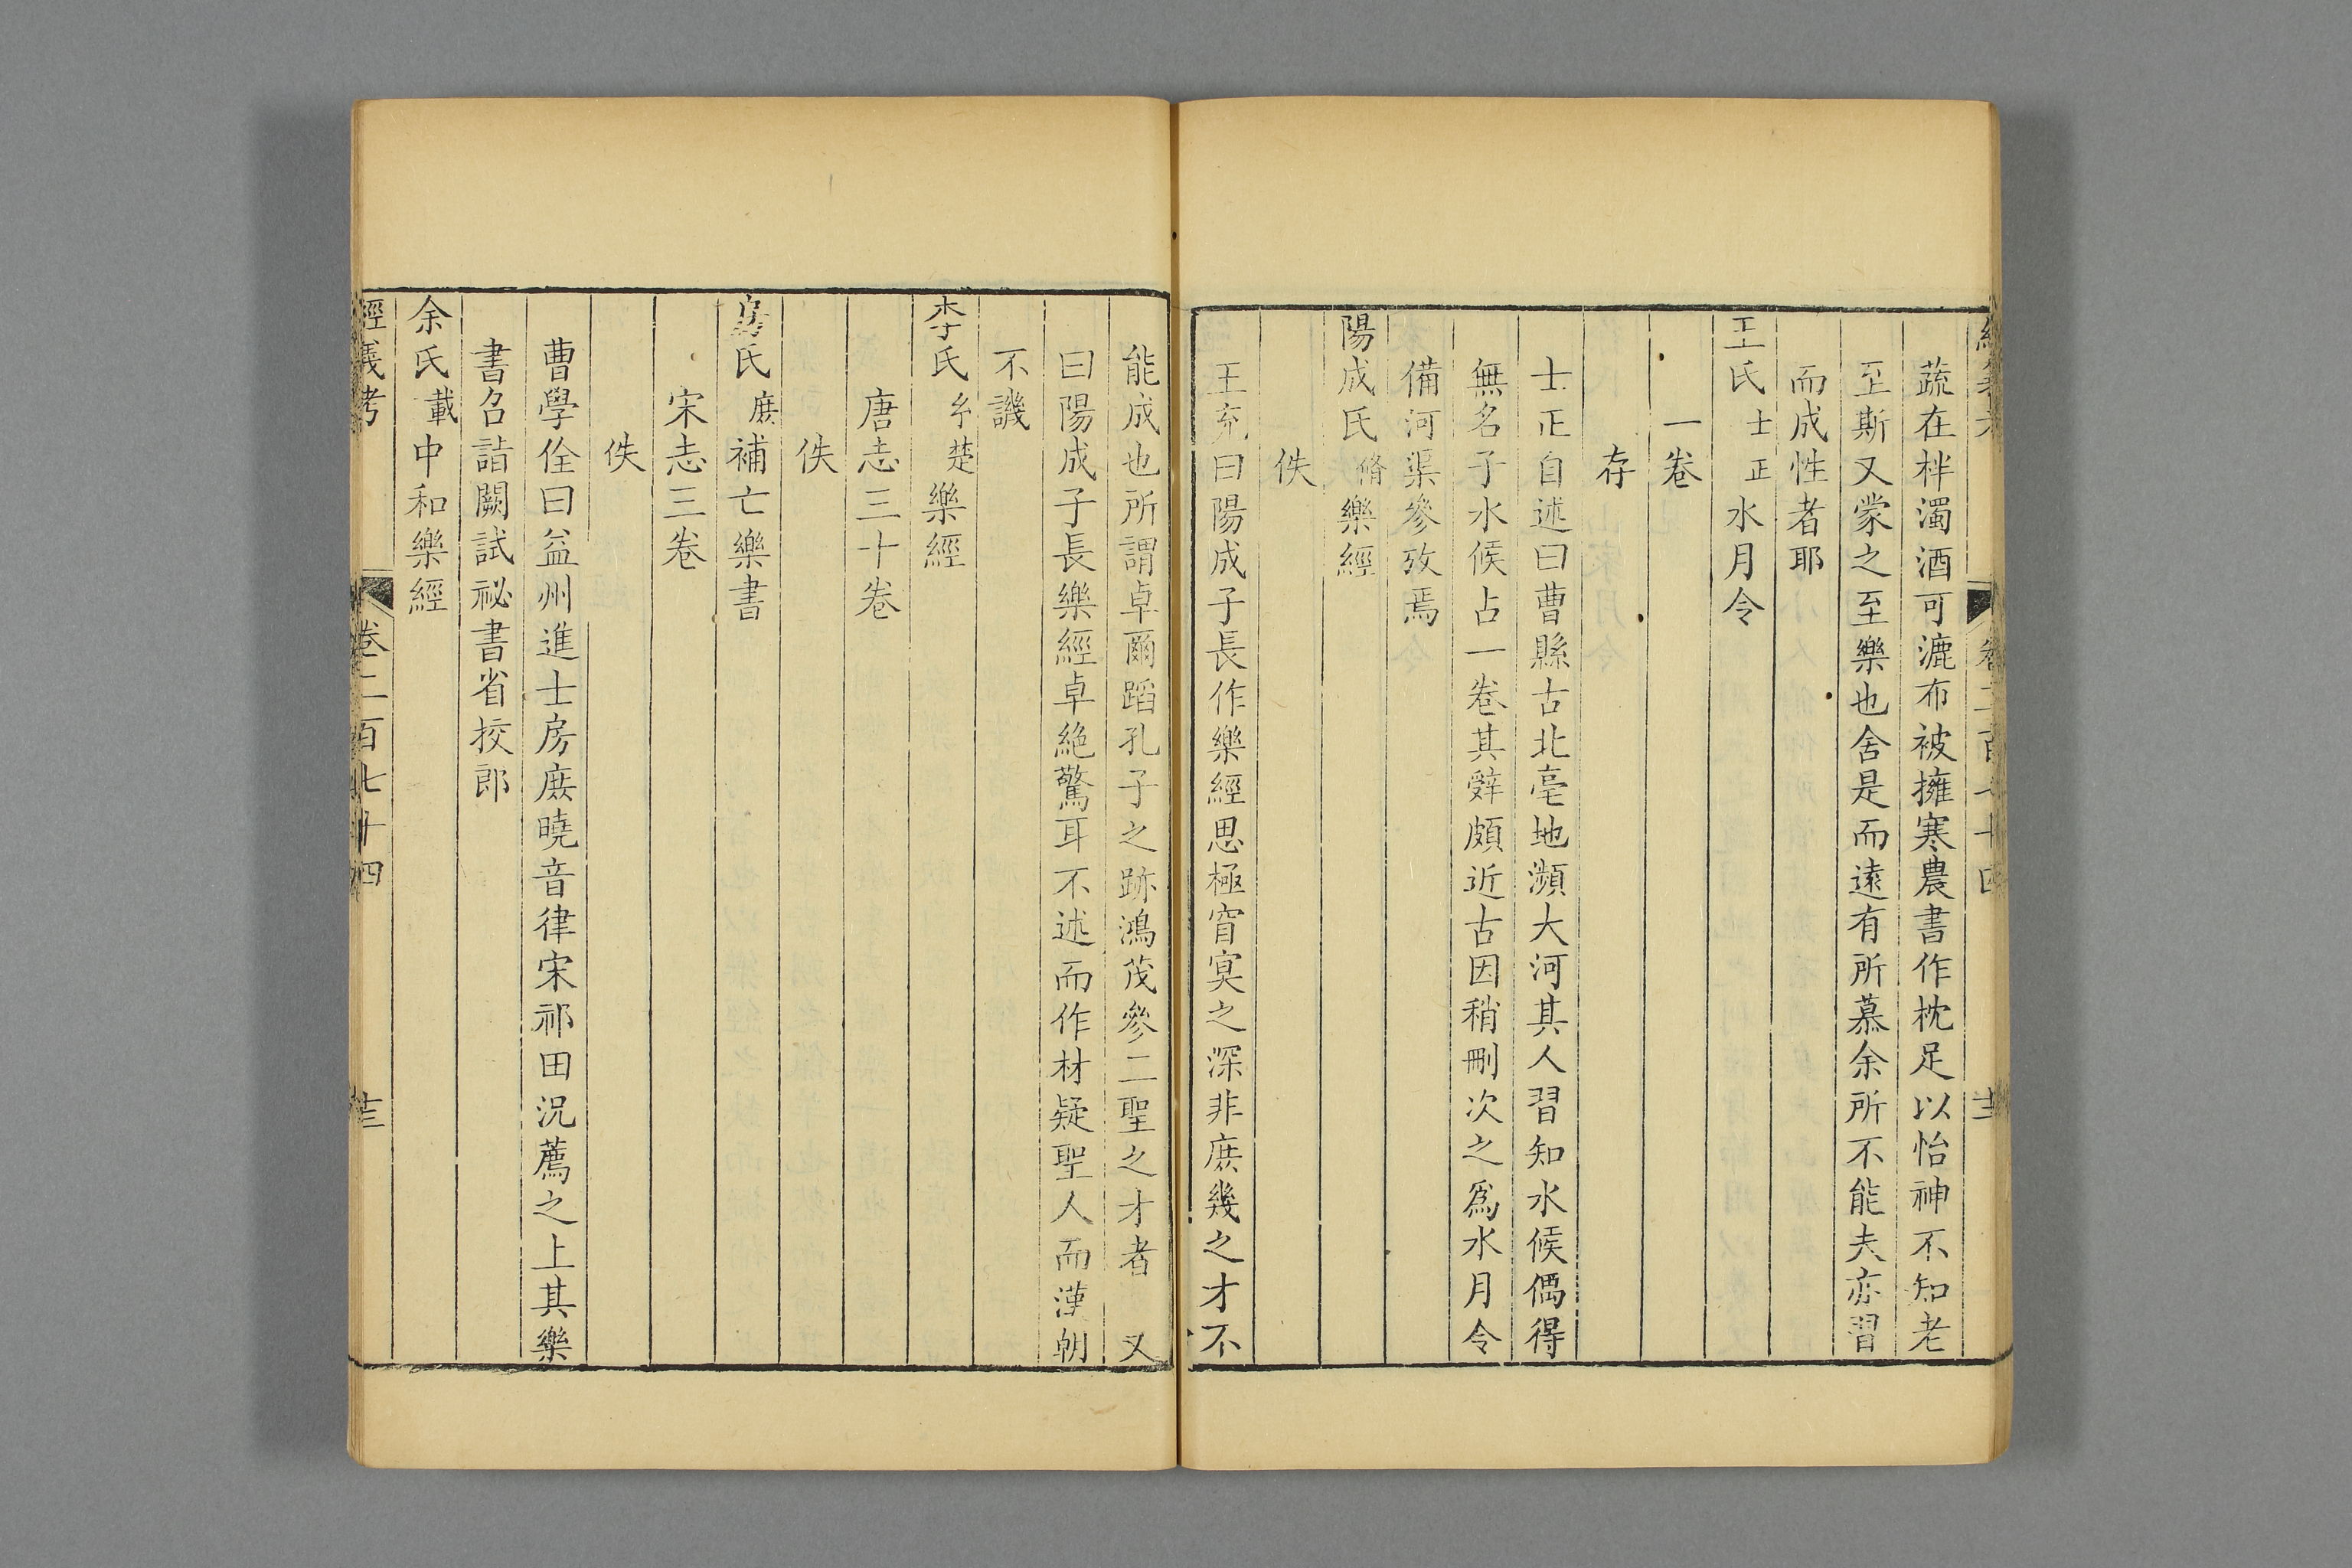 蔬在柈濁酒可漉布被擁寒農書作枕足以怡神不知老
至斯又蒙之至樂也舍是而遠有所慕余所不能夫亦習
而成性者耶
王氏士正水月令
一卷
存
士正自述曰曹縣古北亳地瀕大河其人習知水候偶得
無名子水候占一卷其辭頗近古因稍刪次之爲水月令
備河渠參攷焉
陽成氏脩樂經
佚
王充曰陽成子長作樂經思極窅冥之深非庶幾之才不
能成也所謂卓爾蹈孔子之跡鴻茂參二聖之才者 又
曰陽成子長樂經卓絶驚耳不述而作材疑聖人而漢朝
不譏
李氏 楚樂經
唐志三十卷
佚
房氏庶補亡樂書
宋志三卷
佚
曹學佺曰益州進士房庶曉音律宋祁田況薦之上其樂
書召詣闕試祕書省挍郎
余氏載中和樂經
經義考 卷二百七十四 十三